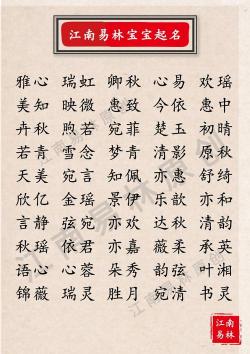 江南易林宝宝起名
雅心 瑞虹 卿秋 心易 欢瑶
美知 映微 惠致 今依 惠中
卉秋 煦若 宛菲 楚玉 初晴
若青 雪念 梦青 清影 原秋
天美 宛言 知佩 亦惠 舒绮
欣亿 金瑶 景伊 乐歆 亦和
言静 弦宛 亦欢 达秋 清韵
秋瑶 依君 亦嘉 薇柔 承英
语心 心蓉 朵秀 韵弦 叶湘
锦薇 瑞灵 胜月 宛清 书灵
江南易林原创
江南
易林